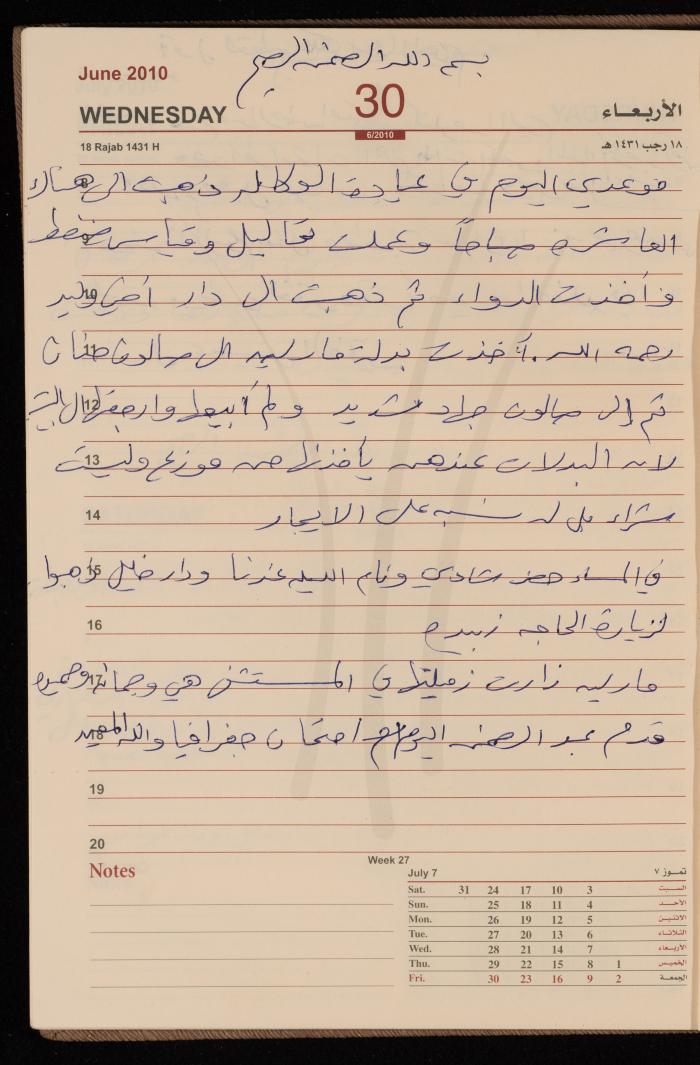 بسم الله الرحمن الرحيم
June 2010
WEDNESDAY
30
6/2010
الأربعاء
18 Rajab 1431 H
١٨ رجب ١٤٣١ هـ
موعدي اليوم في عيادة الوكالة ذهبت الى هناك
العاشرة صباحاً وعملت تحاليل وقياس ضغط
وأخذت الدواء ثم ذهبت الى دار أخي وليد
10
رحمه الله. أخذت بدلة مارليه الى صالون حنان
11
ثم إلى صالون جهاد شديد ولم أبيعها وارجعتها الى البيت
12
لانه البدلات عندهم يأخذنها من موزع وليست
13
شراء بل له نسبه على الايجار
14
في المساء حضر شادي ونام الليله عندنا ودار خليل ذهبوا
15
لزيارة الحاجه زبيده
16
مارليه زارت زميلتها في المستشفى هي وجمانه وحميده
17
قدم عبد الرحمن اليوم امتحان جغرافيا والله المعين
18
19
20
Notes
Week 27
July 7
تمـوز ٧
Sat. 31 24 17 10 3 السبت
Sun. 25 18 11 4 الأحد
Mon. 26 19 12 5 الاثنين
Tue. 27 20 13 6 الثلاثاء
Wed. 28 21 14 7 الأربعاء
Thu. 29 22 15 8 1 الخميس
Fri. 30 23 16 9 2 الجمعة